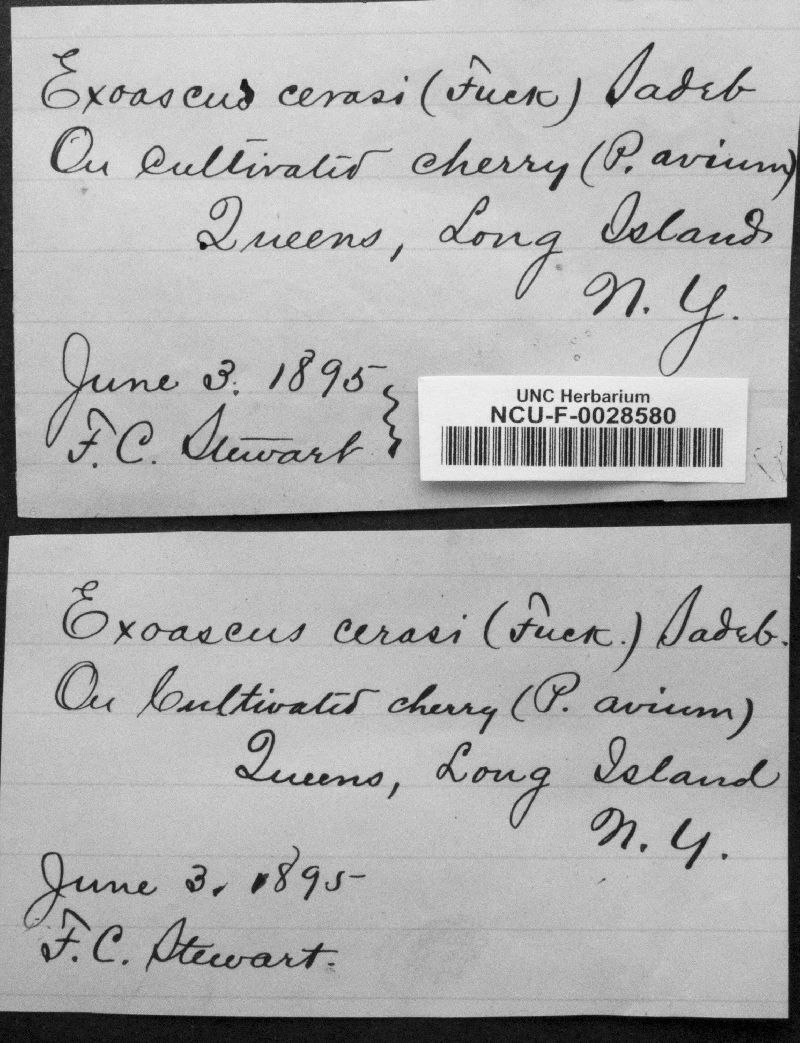 Exoascus cerasi (Fuck) Sadeb
On cultivated cherry (P. avium)
Queens, Long Island
N. Y.
June 3. 1895
F. C. Stewart
UNC Herbarium
NCU-F-0028580
Exoascus cerasi (Fuck.) Sadeb.
On Cultivated cherry (P. avium)
Queens, Long Island
N. Y.
June 3, 1895
F. C. Stewart.